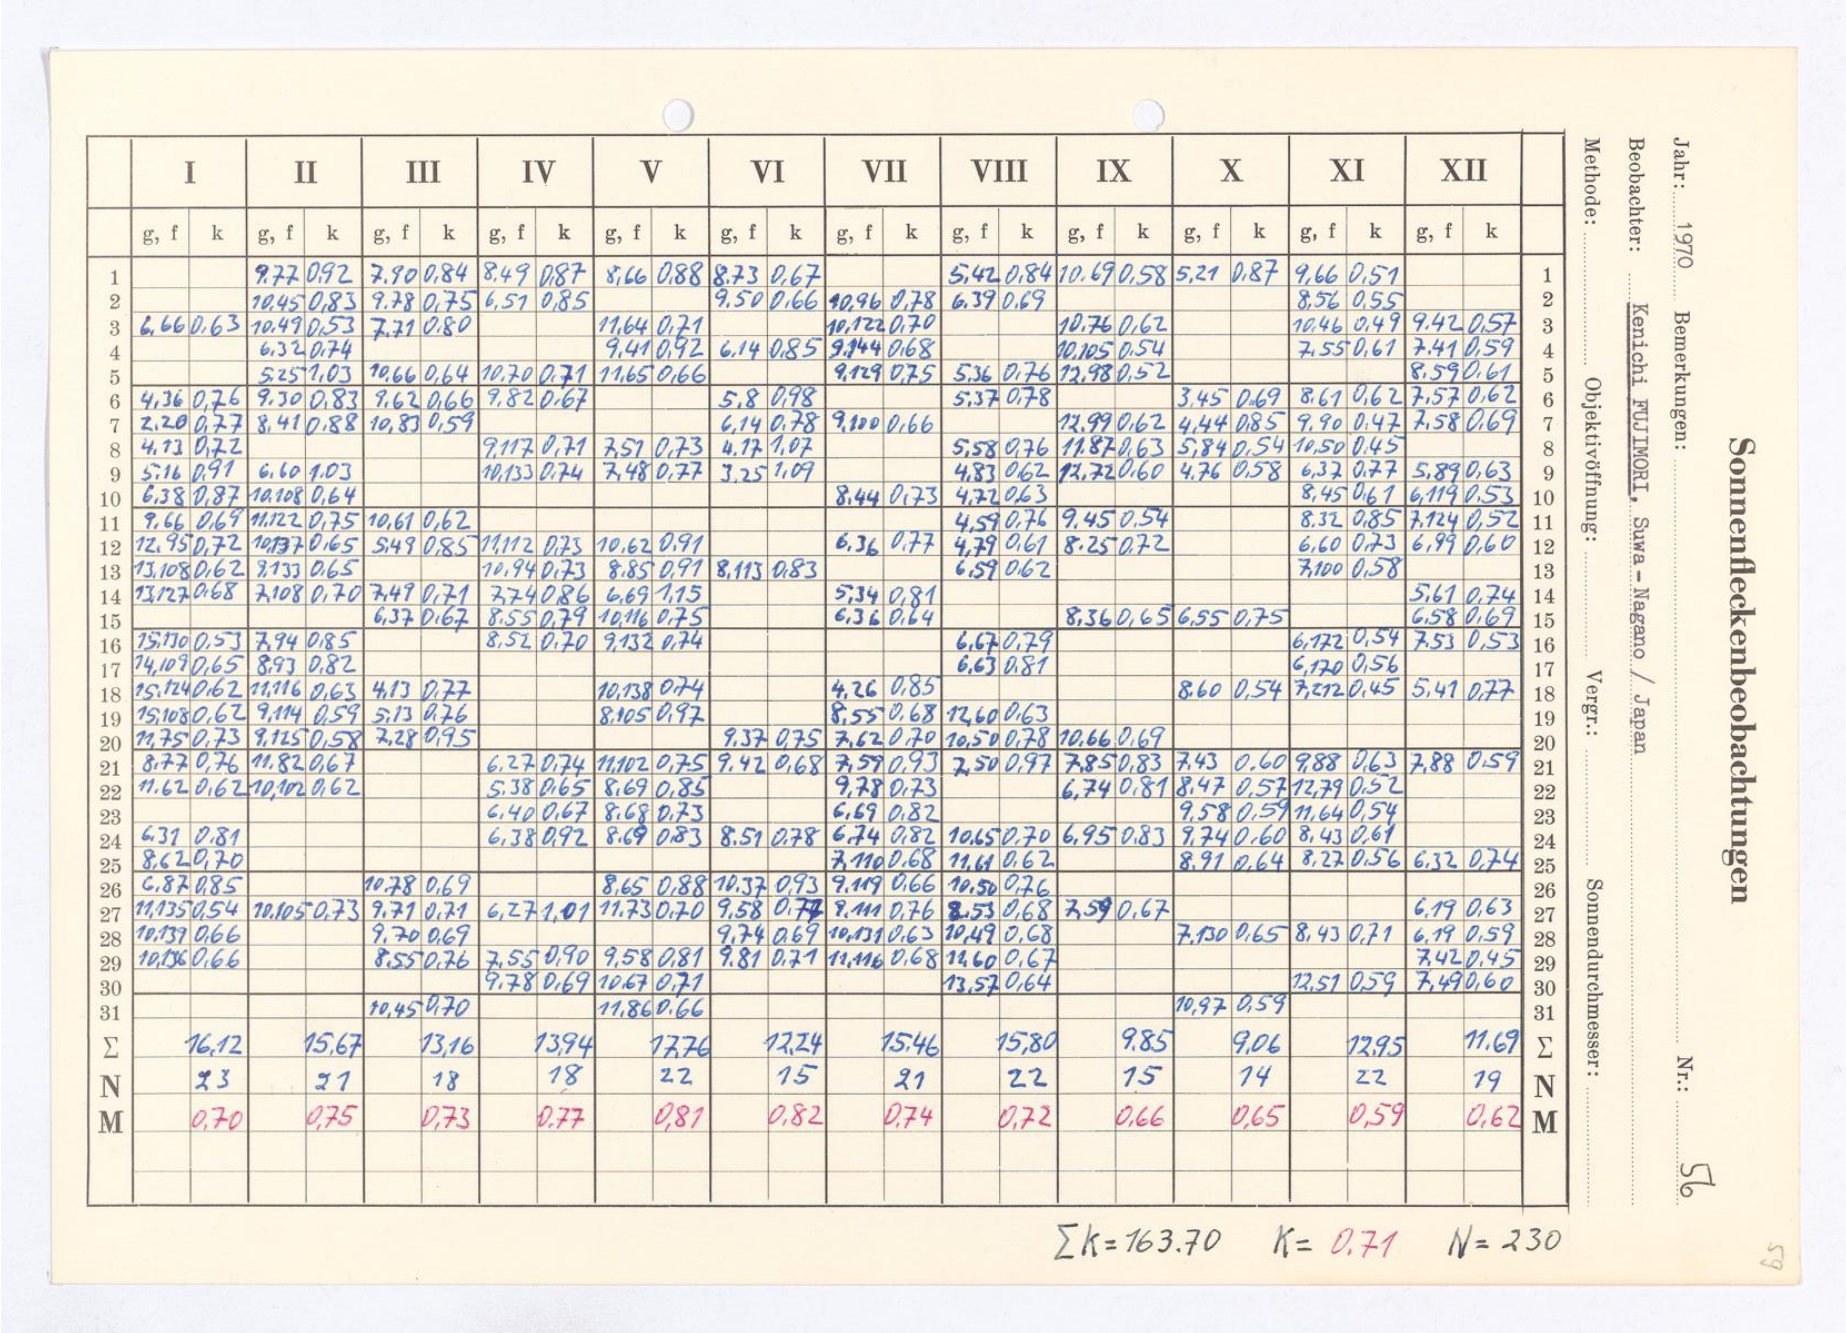 Sonnenfleckenbeobachtungen
Jahr: 1970 Bemerkungen: Nr.: 56
Beobachter: Kenichi FUJIMORI, Suwa-Nagano / Japan
Methode: Objektivöffnung: Vergr.: Sonnendurchmesser:
I II III IV V VI VII VIII IX X XI XII
g, f k g, f k g, f k g, f k g, f k g, f k g, f k g, f k g, f k g, f k g, f k g, f k
1 9.77 0.92 7.90 0,84 8,49 0,87 8,66 0,88 8.73 0,67 5,42 0,84 10.69 0,58 5,21 0.87 9,66 0,51 1
2 10,45 0,83 9.78 0,75 6,51 0,85 9,50 0,66 10,96 0,78 6.39 0,69 8,56 0,55 2
3 6,66 0,63 10,49 0,53 7,71 0,80 11,64 0,71 10,122 0,70 10.76 0,62 10,46 0,49 9,42 0,57 3
4 6,32 0,74 9,41 0,92 6,14 0,85 9,144 0,68 10,105 0,54 7,55 0,61 7,41 0,59 4
5 5,25 1,03 10,66 0,64 10,70 0,71 11,65 0,66 9,129 0,75 5,36 0,76 12,98 0,52 8.59 0.61 5
6 4,36 0,76 9.30 0,83 9,62 0,66 9,82 0,67 5.8 0,98 5,37 0,78 3,45 0,69 8,61 0,62 7,57 0,62 6
7 2,20 0,77 8,41 0,88 10,83 0,59 6,14 0,78 9,100 0,66 12,99 0,62 4,44 0,85 9,90 0,47 7,58 0,69 7
8 4,13 0,72 9,117 0,71 7,51 0,73 4.17 1,07 5,58 0,76 11.87 0,63 5,84 0,54 10,50 0.45 8
9 5,16 0,91 6,60 1.03 10,133 0,74 7,48 0,77 3,25 1,09 4,83 0,62 12,72 0,60 4,76 0,58 6,37 0,77 5,89 0,63 9
10 6,38 0,87 10,108 0,64 8,44 0,73 4,72 0,63 8,45 0,61 6,119 0,53 10
11 9,66 0,69 11,122 0,75 10,61 0,62 4,59 0,76 9,45 0,54 8.32 0,85 7,124 0,52 11
12 12,95 0,72 10,137 0,65 5,49 0,85 11,112 0,73 10,62 0,91 6,36 0,77 4,79 0,61 8.25 0,72 6,60 0,73 6,99 0,60 12
13 13,108 0,62 9,133 0.65 10,94 0,73 8.85 0,91 8,113 0,83 6,59 0,62 7,100 0,58 13
14 13,127 0,68 7,108 0,70 7,49 0,71 7,74 0,86 6,69 1,15 5,34 0,81 5,61 0,74 14
15 6,37 0,67 8.55 0,79 10,116 0,75 6,36 0,64 8,36 0,65 6,55 0,75 6,58 0,69 15
16 15,130 0,53 7,94 0,85 8,52 0,70 9,132 0,74 6,67 0,79 6,172 0,54 7.53 0,53 16
17 14,109 0,65 8,93 0,82 6,63 0,81 6,170 0,56 17
18 15,124 0,62 11,116 0,63 4,13 0,77 10,138 0,74 4,26 0,85 8.60 0,54 7,212 0,45 5,41 0,77 18
19 15,108 0,62 9,114 0,59 5,13 0,76 8,105 0,97 8,55 0,68 12,60 0,63 19
20 11,75 0,73 9,125 0,58 7,28 0,95 9.37 0,75 7,62 0,70 10,50 0,78 10,66 0,69 20
21 8,77 0,76 11.82 0,67 6,27 0,74 11,102 0,75 9,42 0,68 7,59 0,93 7,50 0,97 7,85 0,83 7,43 0.60 9,88 0,63 7,88 0.59 21
22 11.62 0,62 10,102 0,62 5.38 0.65 8,69 0,85 9,78 0,73 6,74 0,81 8,47 0,57 12,79 0,52 22
23 6,40 0,67 8.68 0,73 6,69 0,82 9,58 0,59 11,64 0,54 23
24 6.31 0,81 6,38 0,92 8.69 0.83 8.51 0,78 6,74 0,82 10.65 0,70 6,95 0,83 9,74 0,60 8,43 0,61 24
25 8,62 0,70 7,110 0,68 11,61 0.62 8.91 0,64 8,27 0,56 6,32 0,74 25
26 6,87 0,85 10.78 0,69 8,65 0,88 10.37 0,93 9.119 0,66 10.50 0,76 26
27 11,135 0,54 10.105 0,73 9.71 0,71 6,27 1,01 11.73 0,70 9,58 0,77 9.111 0,76 8.53 0,68 7,59 0,67 6,19 0,63 27
28 10,139 0,66 9,70 0,69 9,74 0,69 10,131 0,63 10,49 0,68 7,130 0,65 8,43 0,71 6,19 0,59 28
29 10,136 0,66 8.55 0,76 7,55 0,90 9,58 0,81 9.81 0,71 11,116 0,68 11,60 0,67 7,42 0,45 29
30 9,78 0,69 10,67 0,71 13,57 0,64 12,51 0,59 7,49 0,60 30
31 10,45 0,70 11,86 0,66 10,97 0,59 31
Σ 16,12 15,67 13,16 13,94 17,76 12,24 15.46 15,80 9.85 9,06 12,95 11.69 Σ
N 23 21 18 18 22 15 21 22 15 14 22 19 N
M 0,70 0,75 0,73 0.77 0,81 0,82 0,74 0,72 0,66 0,65 0,59 0,62 M
Σk=163.70 K= 0.71 N= 230
65